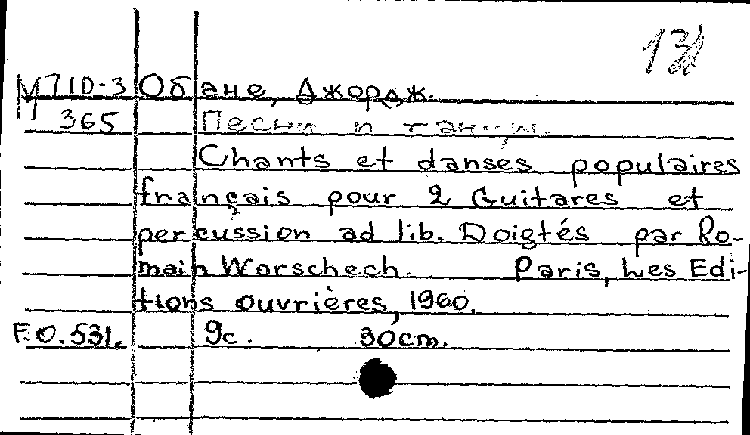 М 71D-3 Обане, Джордж.
365 Песни и танцы.
Chants et danses populaires
français pour 2 Guitares et
percussion ad lib. Doigtés par Ro-
main Worschech. Paris, Les Edi-
tions ouvrières, 1960.
F.O.531. 9с. 30cm.